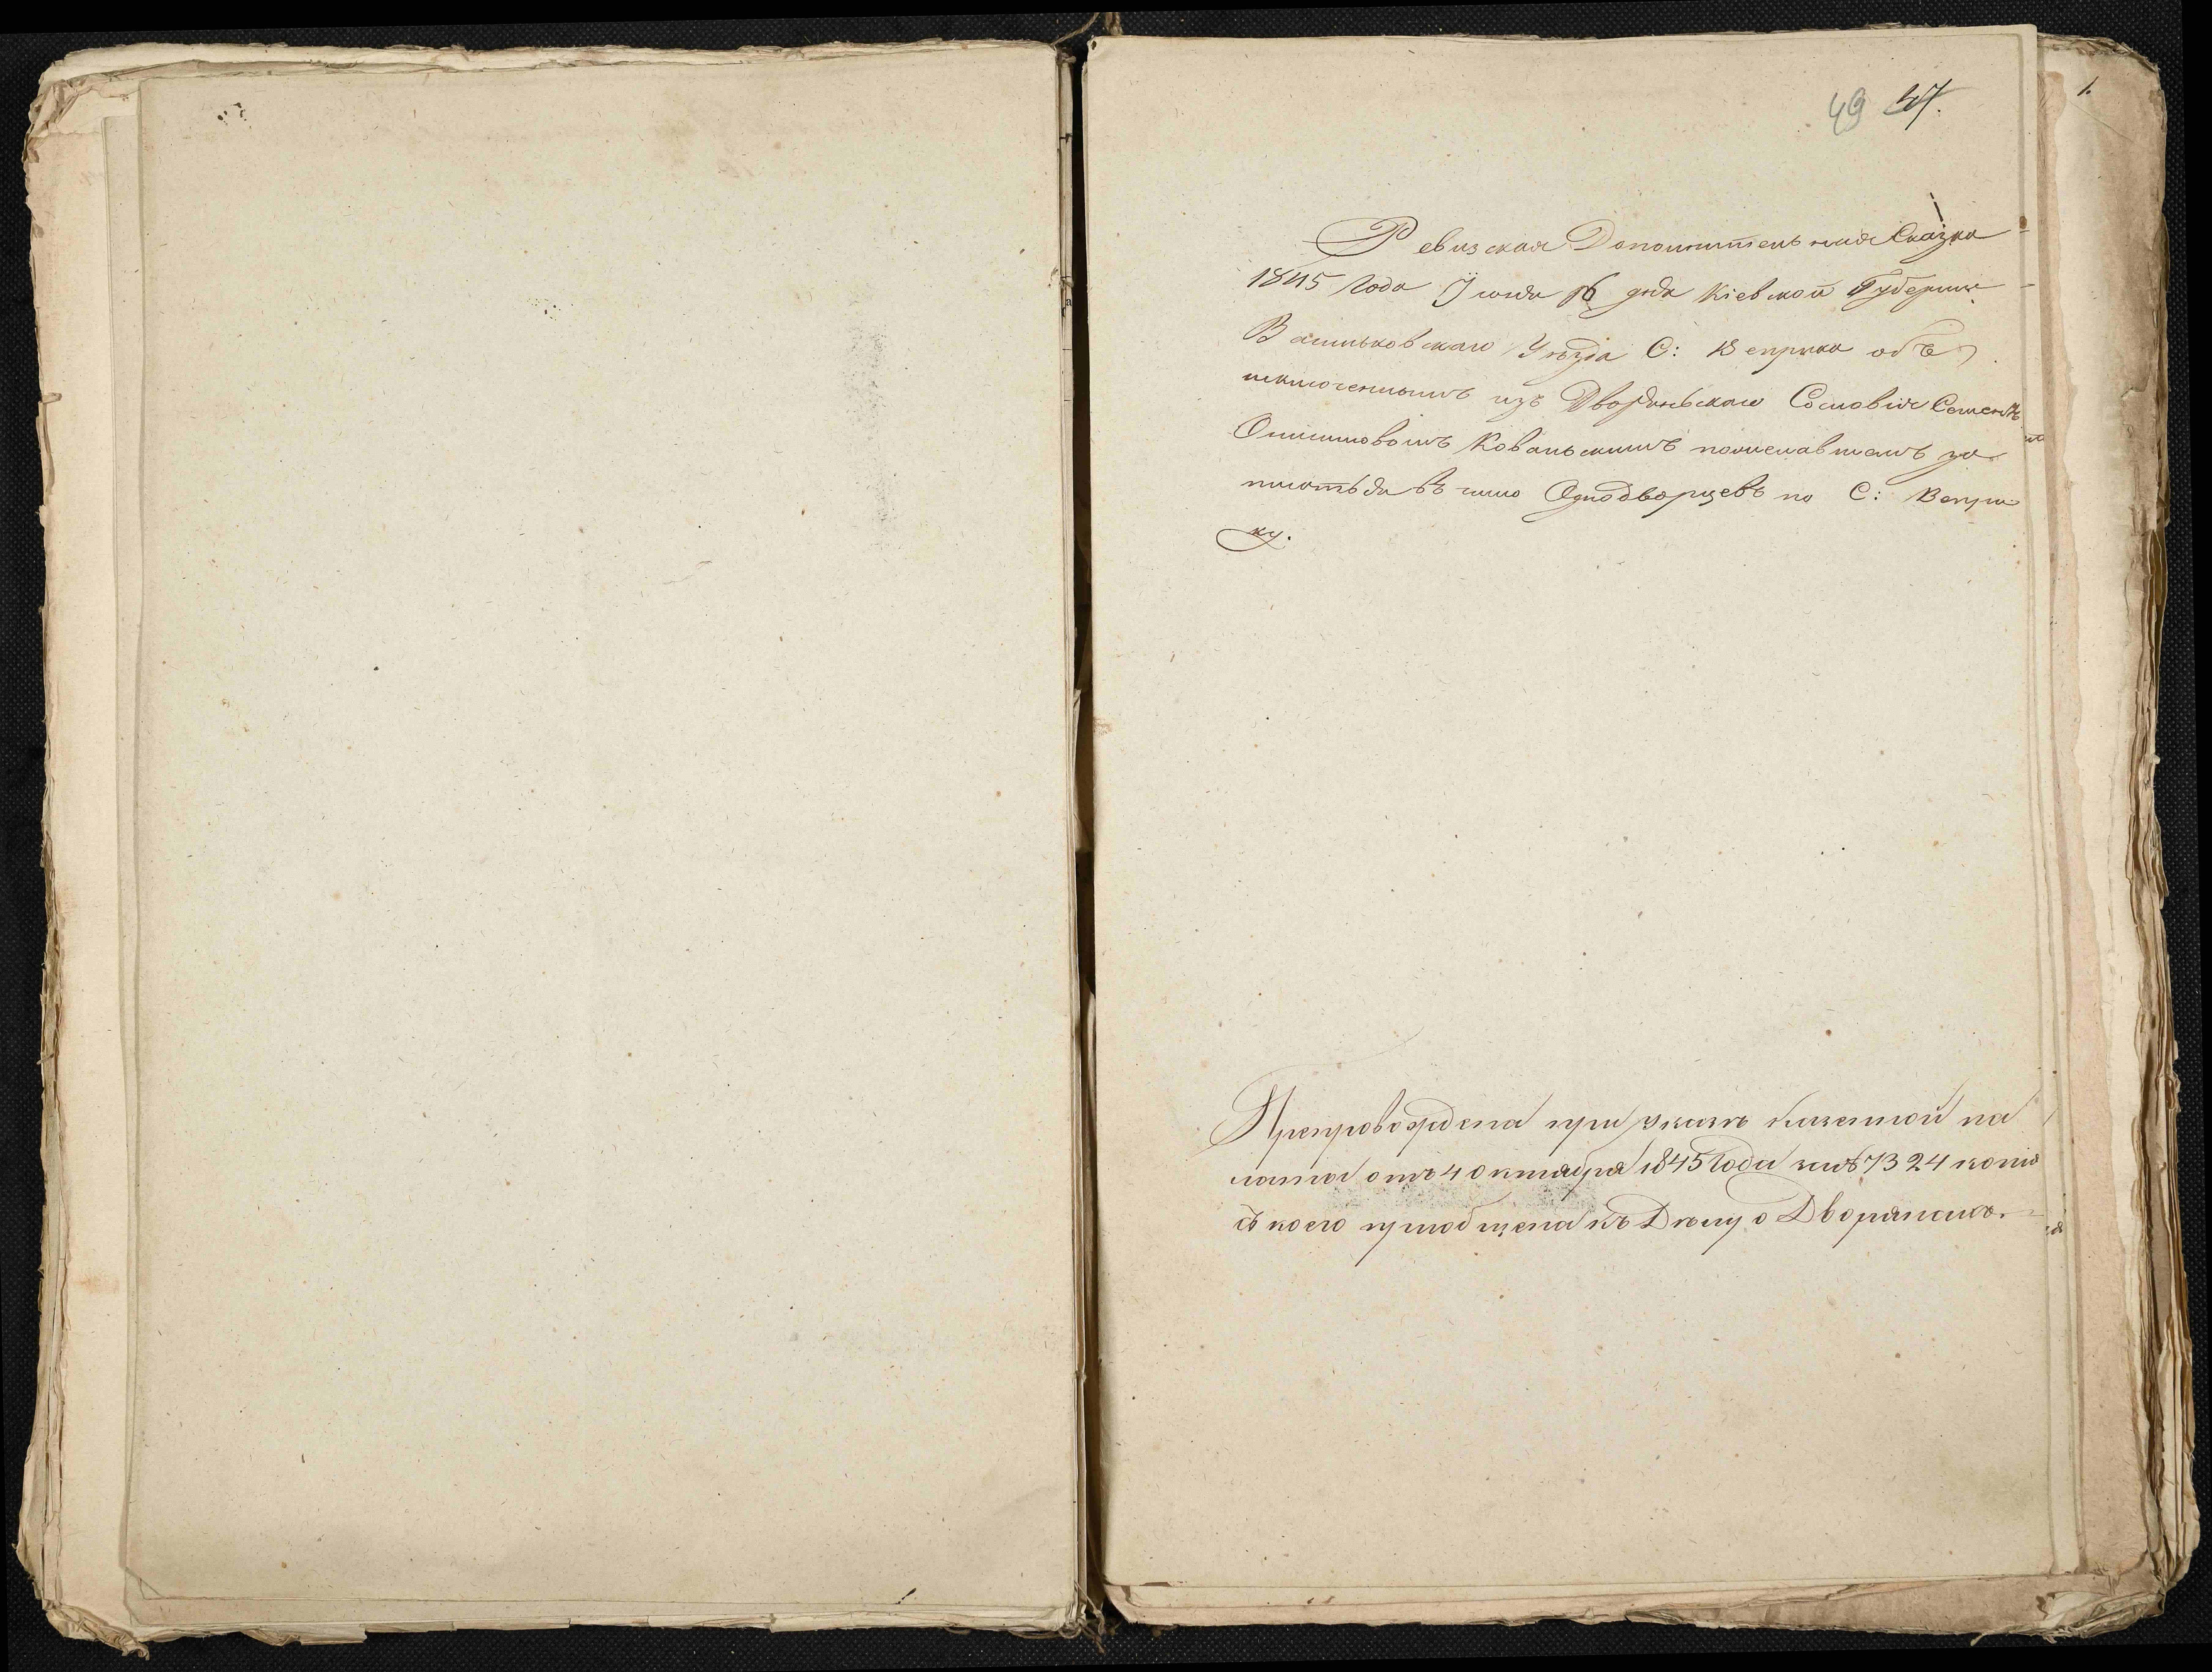 49 47.
1.
Ревизская Дополнительная Сказка
1845 Года Июня 16 дня Кіевской Губерніи
Васильковскаго Уѣзда С: Веприка объ
исключенномъ изъ Дворянскаго Сословія Семенѣ
Ковальскимъ пожелавшемъ за
писаться въ число Однодворцевъ по С: Вепри
ку.
Препровождена при указѣ Казенной па
латы отъ 4 октября 1845 Года за № 7324 копія
съ коего пріобщена къ Дѣлу о Дворянахъ.